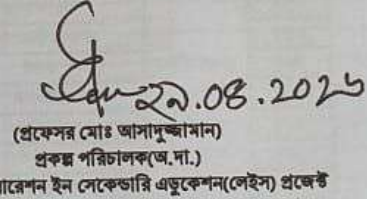 ২৯.০৪.২০২৬
(প্রফেসর মোঃ আসাদুজ্জামান)
প্রকল্প পরিচালক(অ.দা.)
ারেশন ইন সেকেন্ডারি এডুকেশন(লেইস) প্রজেক্ট